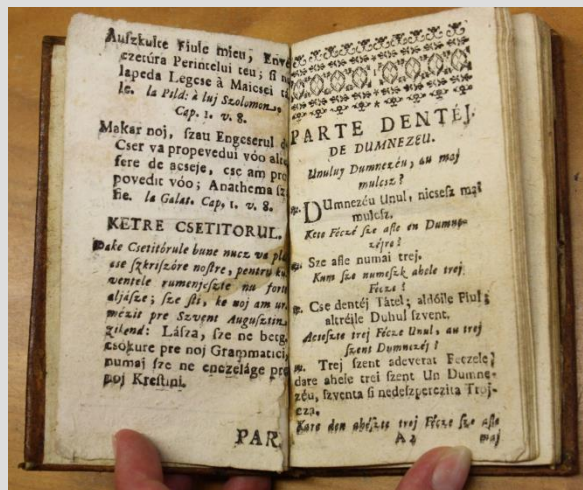 Auſzkulte Fiule mieu, Envé
czetúra Perintelui teu; ſi nu
lapeda Legcse à Maicsei
le. la Pild: à luj Szolomon.
Cap. 1. v. 8.
Makar noj, ſzau Engcserul
Cser va propevedui vóo alte
fere de acseje, cse am pro
povedit vóo; Anathema ſz
fie. la Galat. Cap. 1. v. 8.
KETRE CSETITORUL.
Dake Csetitórule bune nucz va
ase ſzkriſzóre noſtre, pentru
ventele rumenjeſzte nu
aljáſze; ſze ſti, ke noj am
mézit pre Szvent Auguſztin
zikend: Láſza, ſze ne betg
csókure pre noj Grammatici,
numaj ſze ne enczeláge pre
noj Kreſtini.
PAR
PARTE DENTÉJ.
DE DUMNEZEU.
Unuluy Dumnezéu, au maj
mulcsz?
DUmnezéu Unul, nicseſz maj
mulcsz.
Kete Féczé ſze afle en Dumne-
zéjre?
Sze afle numai trej.
Kum ſze numeſzk ahele trej
Fécze?
Cse dentéj Tátel; aldóile Fiul;
altréjle Duhul ſzvent.
Acseſzte trej Fécze Unul, au trej
ſzent Dumnezéj?
Trej ſzent adeverat Feczele;
dare ahele trei ſzent Un Dumne-
zéu, ſzventa ſi nedeſzpерczita Troj-
cza.
Kare den aheſzte trej Fécze ſze afle
A2 maj